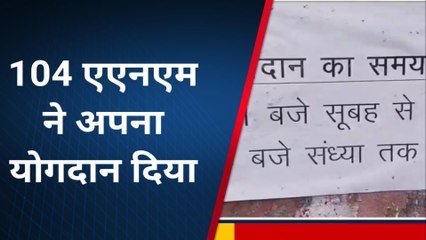 104 एएनएम
ने अपना
योगदान दिया
दान का समय
बजे सूबह से
बजे संध्या तक